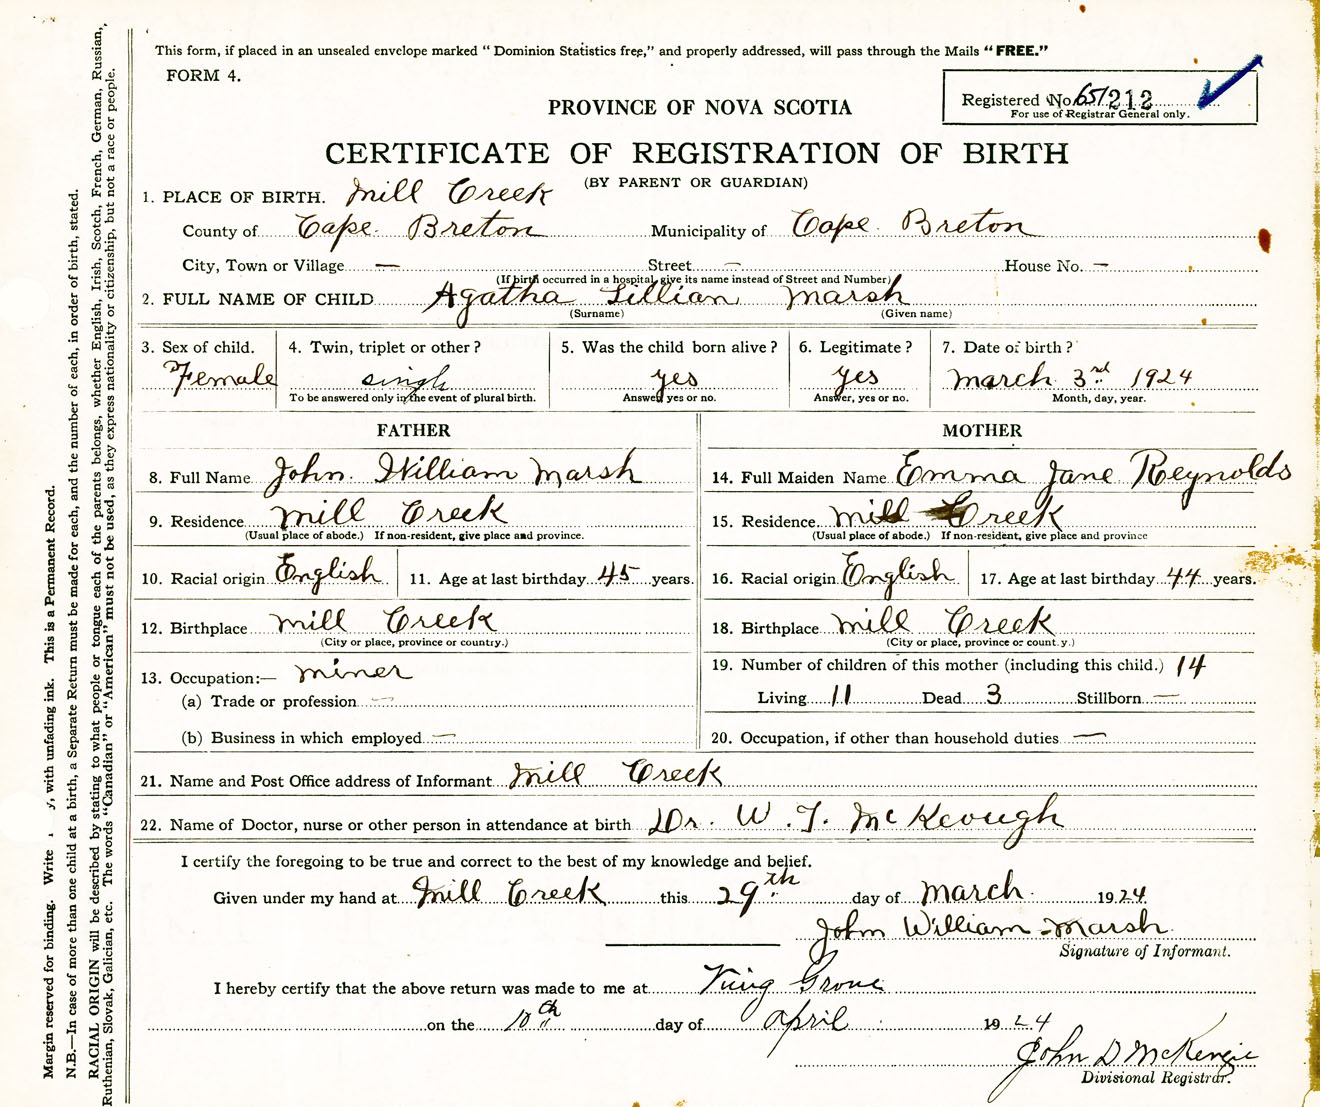 This form, if placed in an unsealed envelope marked "Dominion Statistics free," and properly addressed, will pass through the Mails "FREE."
FORM 4.
Registered No. 651212
For use of Registrar General only.
PROVINCE OF NOVA SCOTIA
CERTIFICATE OF REGISTRATION OF BIRTH
(BY PARENT OR GUARDIAN)
1. PLACE OF BIRTH. Mill Creek
County of Cape Breton Municipality of Cape Breton
City, Town or Village — Street — House No. —
(If birth occurred in a hospital, give its name instead of Street and Number)
2. FULL NAME OF CHILD Agatha Lillian Marsh
(Surname) (Given name)
3. Sex of child. 4. Twin, triplet or other? 5. Was the child born alive? 6. Legitimate? 7. Date of birth?
Female single yes yes March 3rd 1924
To be answered only in the event of plural birth. Answer yes or no. Answer, yes or no. Month, day, year.
FATHER MOTHER
8. Full Name John William Marsh 14. Full Maiden Name Emma Jane Reynolds
9. Residence Mill Creek 15. Residence Mill Creek
(Usual place of abode.) If non-resident, give place and province. (Usual place of abode.) If non-resident, give place and province
10. Racial origin English 11. Age at last birthday 45 years. 16. Racial origin English 17. Age at last birthday 44 years.
12. Birthplace Mill Creek 18. Birthplace Mill Creek
(City or place, province or country.) (City or place, province or county.)
13. Occupation:— miner 19. Number of children of this mother (including this child.) 14
(a) Trade or profession — Living 11 Dead 3 Stillborn —
(b) Business in which employed — 20. Occupation, if other than household duties —
21. Name and Post Office address of Informant Mill Creek
22. Name of Doctor, nurse or other person in attendance at birth Dr. W. T. McKeough
I certify the foregoing to be true and correct to the best of my knowledge and belief.
Given under my hand at Mill Creek this 29th day of March 1924
John William Marsh
Signature of Informant.
I hereby certify that the above return was made to me at Grove
on the 10th day of April 1924
John D McKenzie
Divisional Registrar.
Margin reserved for binding. Write y, with unfading ink. This is a Permanent Record.
N.B.—In case of more than one child at a birth, a Separate Return must be made for each, and the number of each, in order of birth, stated.
RACIAL ORIGIN will be described by stating to what people or tongue each of the parents belongs, whether English, Irish, Scotch, French, German, Russian,
Ruthenian, Slovak, Galician, etc. The words "Canadian" or "American" must not be used, as they express nationality or citizenship, but not a race or people.